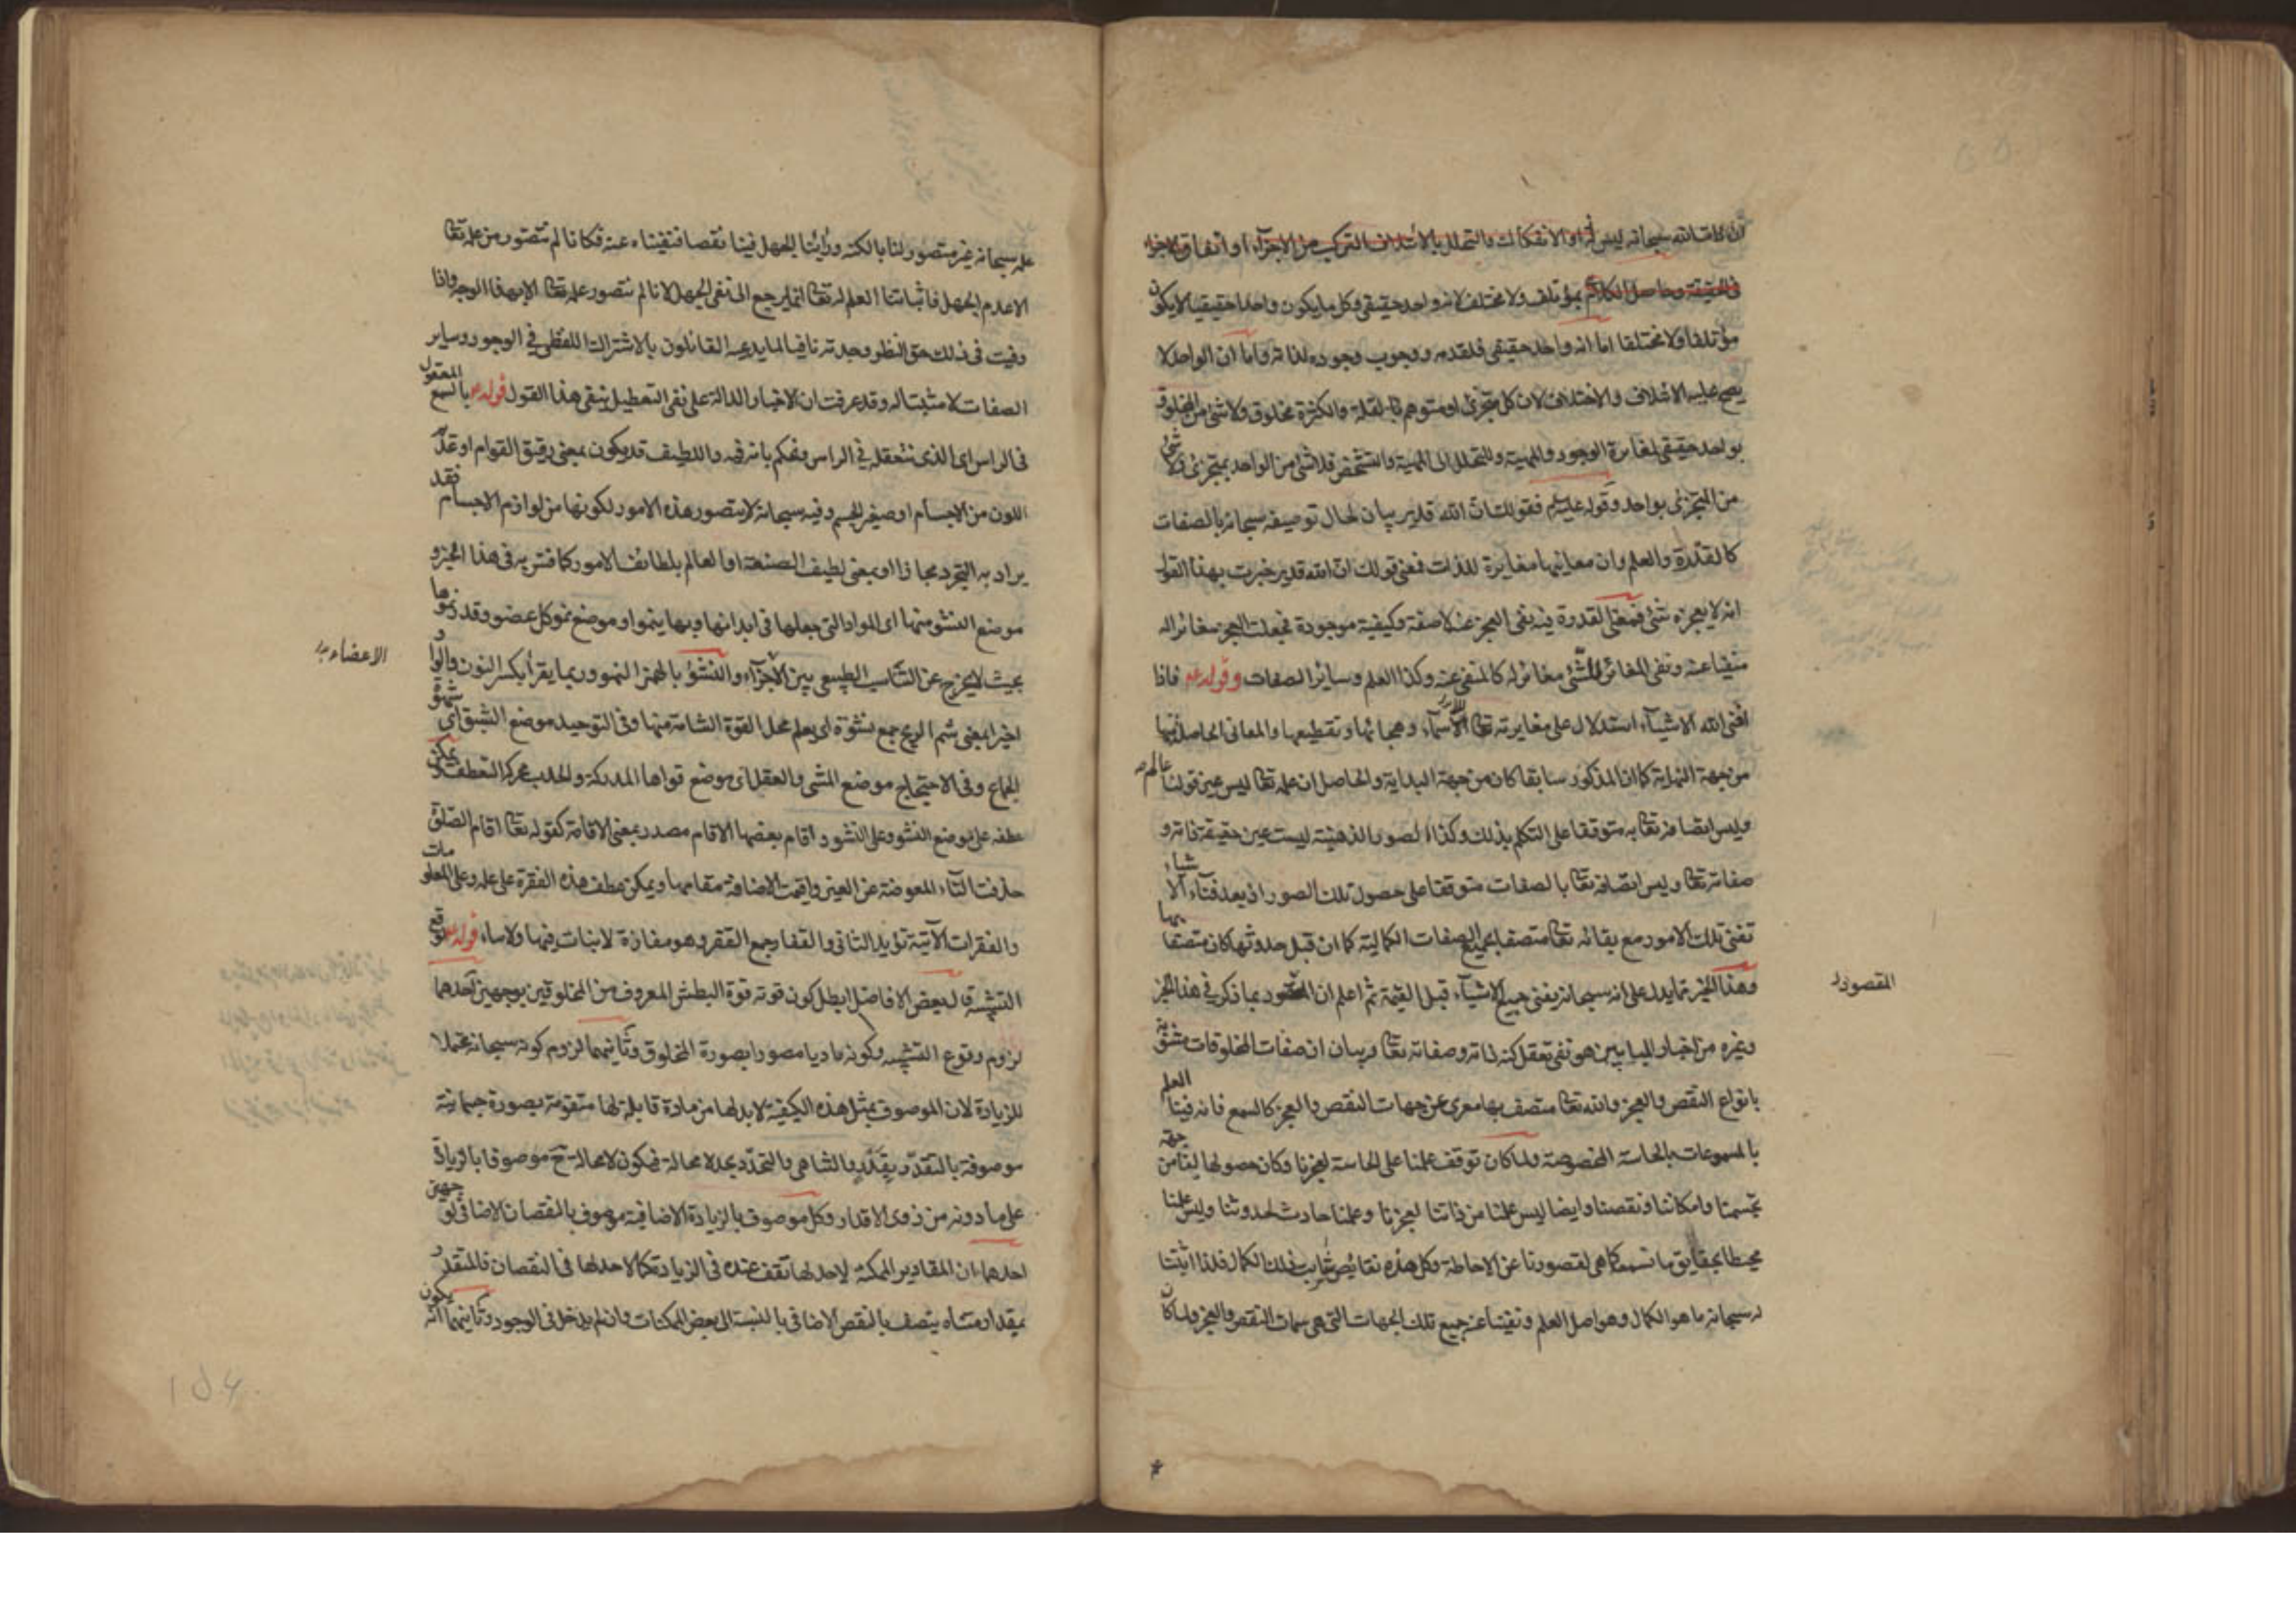 في الحقيقة وحاصل الكلام بمؤتلف ولا مختلف لانه واحد حقيقي وكل ما يكون واحدا حقيقيا لا يكون
مؤتلفا ولا مختلفا اما انه واحد حقيقي فلقدمه ووجوب وجوده لذاته واما ان الواحد لا
يصح عليه الائتلاف والاختلاف لان كل متجزئ او متوهم بالقلة والكثرة مخلوق ولا شئ من المخلوق
بواحد حقيقي لمغايرة الوجود والمهية وللتحلل الى المهية والتشخص فلا شئ من الواحد بمتجزئ ولا شئ
من المتجزئ بواحد وقوله عليه السلم فقولك ان الله قدير بيان لحال توصيفه سبحانه بالصفات
كالقدرة والعلم وان معانيها مغايرة للذات فمعنى قولك ان الله قدير خبرت بهذا القول
انه لا يعجزه شئ فمعنى القدرة فيه نفى العجز عنه لا صفة وكيفية موجودة فجعلت العجز مغائرا له
منفيا عنه ونفى المغائر للشئ مغائر له كالمنفى عنه وكذا العلم وسائر الصفات وقوله ع فاذا
افنى الله الاشياء استدلال على مغايرته تعا للاسماء وهجائها وتقطيعها والمعانى الحاصلة منها
من جهة النهاية كما ان المذكور سابقا كان من جهة البداية والحاصل ان علمه تعا ليس عين قولنا عالم
وليس اتصافه تعا به متوقفا على التكلم بذلك وكذا الصور الذهنية ليست عين حقيقة ذاته و
صفاته تعا وليس اتصافه تعا بالصفات متوقفا على حصول تلك الصور اذ بعد فناء الاشياء
تفنى تلك الامور مع بقائه تعا متصفا بجميع الصفات الكمالية كما ان قبل حدوثها كان متصفا بها
وهذا الخبر مما يدل على انه سبحانه يفنى جميع الاشياء قبل القيمة ثم اعلم ان المقصود بما ذكر في هذا الخبر
المقصود
وغيره من اخبار الباب هو نفى تعقل كنه ذاته وصفاته تعا وبيان ان صفات المخلوقات مشوبة
بانواع النقص والعجز والله تعا متصف بها معرى عن جهات النقص والعجز كالسمع فانه فينا العلم
بالمسموعات بالحاسة المخصوصة ولما كان توقف علمنا على الحاسة لعجزنا وكان حصولها لنا من جهة
تجسمنا وامكاننا ونقصنا وايضا ليس علمنا من ذاتنا لعجزنا وعلمنا حادث لحدوثنا وليس علمنا
محيطا بحقايق ما نسمعه كما هي لقصورنا عن الاحاطة وكل هذه نقائص شابت ذلك الكمال فلذا اثبتنا
له سبحانه ما هو الكمال وهو اصل العلم ونفينا عنه جميع تلك الجهات التي هي سمات النقص والعجز ولما كان
علمه سبحانه غير متصور لنا بالكنه ورأينا الجهل فينا نقصا فنفيناه عنه فكانا لم نتصور من علمه تعا
الا عدم الجهل فاثباتنا العلم له تعا انما يرجع الى نفى الجهل لانا لم نتصور علمه تعا الا بهذا الوجه واذا
وفيت فى ذلك حق النظر وجدته نافيا لما يدعيه القائلون بالاشتراك اللفظى في الوجود وساير
الصفات لا مثبتا له وقد عرفت ان الاخبار الدالة على نفى التعطيل ينفى هذا القول قوله ع بالسمع المعقول
فى الراس اى الذى نتعقله في الراس ونحكم بانه فيه واللطيف قد يكون بمعنى رقيق القوام او عديم
اللون من الاجسام او صغير الجسم وفيه سبحانه لا يتصور هذه الامور لكونها من لوازم الاجسام فقد
يراد به التجرد مجازا او بمعنى لطيف الصنعة او العالم بلطائف الامور كما فسر به في هذا الخبر و
موضع النشو منها اى المواد التى جعلها فى ابدانها وبها ينمو او موضع نمو كل عضو وقدر نموها
الاعضاء
بحيث لا يخرج عن التناسب الطبيعى بين الاجزاء والنشؤ بالهمز النمو وربما يقرأ بكسر النون والواو
اخيرا بمعنى شم الريح جمع نشوة اى يعلم محل القوة الشامة منها وفى التوحيد موضع الشبق اى شهوة
الجماع وفى الاحتجاج موضع المشى والعقل اى موضع قواها المدركة والحدب محركة التعطف يمكن
عطفه على موضع النشو وعلى النشو واقام بعضها الاقام مصدر بمعنى الاقامة كقوله تعا اقام الصلوة
حذفت التاء المعوضة عن العين واقيمت الاضافة مقامها ويمكن عطف هذه الفقرة على علمه وعلى المعلومات
والفقرات الآتية تؤيد الثانى والقفار جمع القفر وهو مفازة لا نبات فيها ولا ماء قوله ع لوقع
التشبيه قال بعض الافاضل ابطل كون قوته قوة البطش المعروف من المخلوقين بوجهين احدهما
لزوم وقوع التشبيه وكونه ماديا مصورا بصورة المخلوق وثانيهما لزوم كونه سبحانه محتملا
للزيادة لان الموصوف بمثل هذه الكيفية لابد لها من مادة قابلة لها متقومة بصورة جسمانية
موصوفة بالتقدر بقدر والتناهى والتحدد بحد لا محالة فيكون لا محالة ح موصوفا بالزيادة
على ما دونه من ذوى الاقدار وكل موصوف بالزيادة الاضافية موصوف بالنقصان الاضافى لوجهين
احدهما ان المقادير الممكنة لاحد لها تقف عنده فى الزيادة كما لاحد لها فى النقصان فالمتقدر
بمقدار متناه يتصف بالنقص الاضافى بالنسبة الى بعض الممكنات وان لم يدخل فى الوجود وثانيهما انه يكون